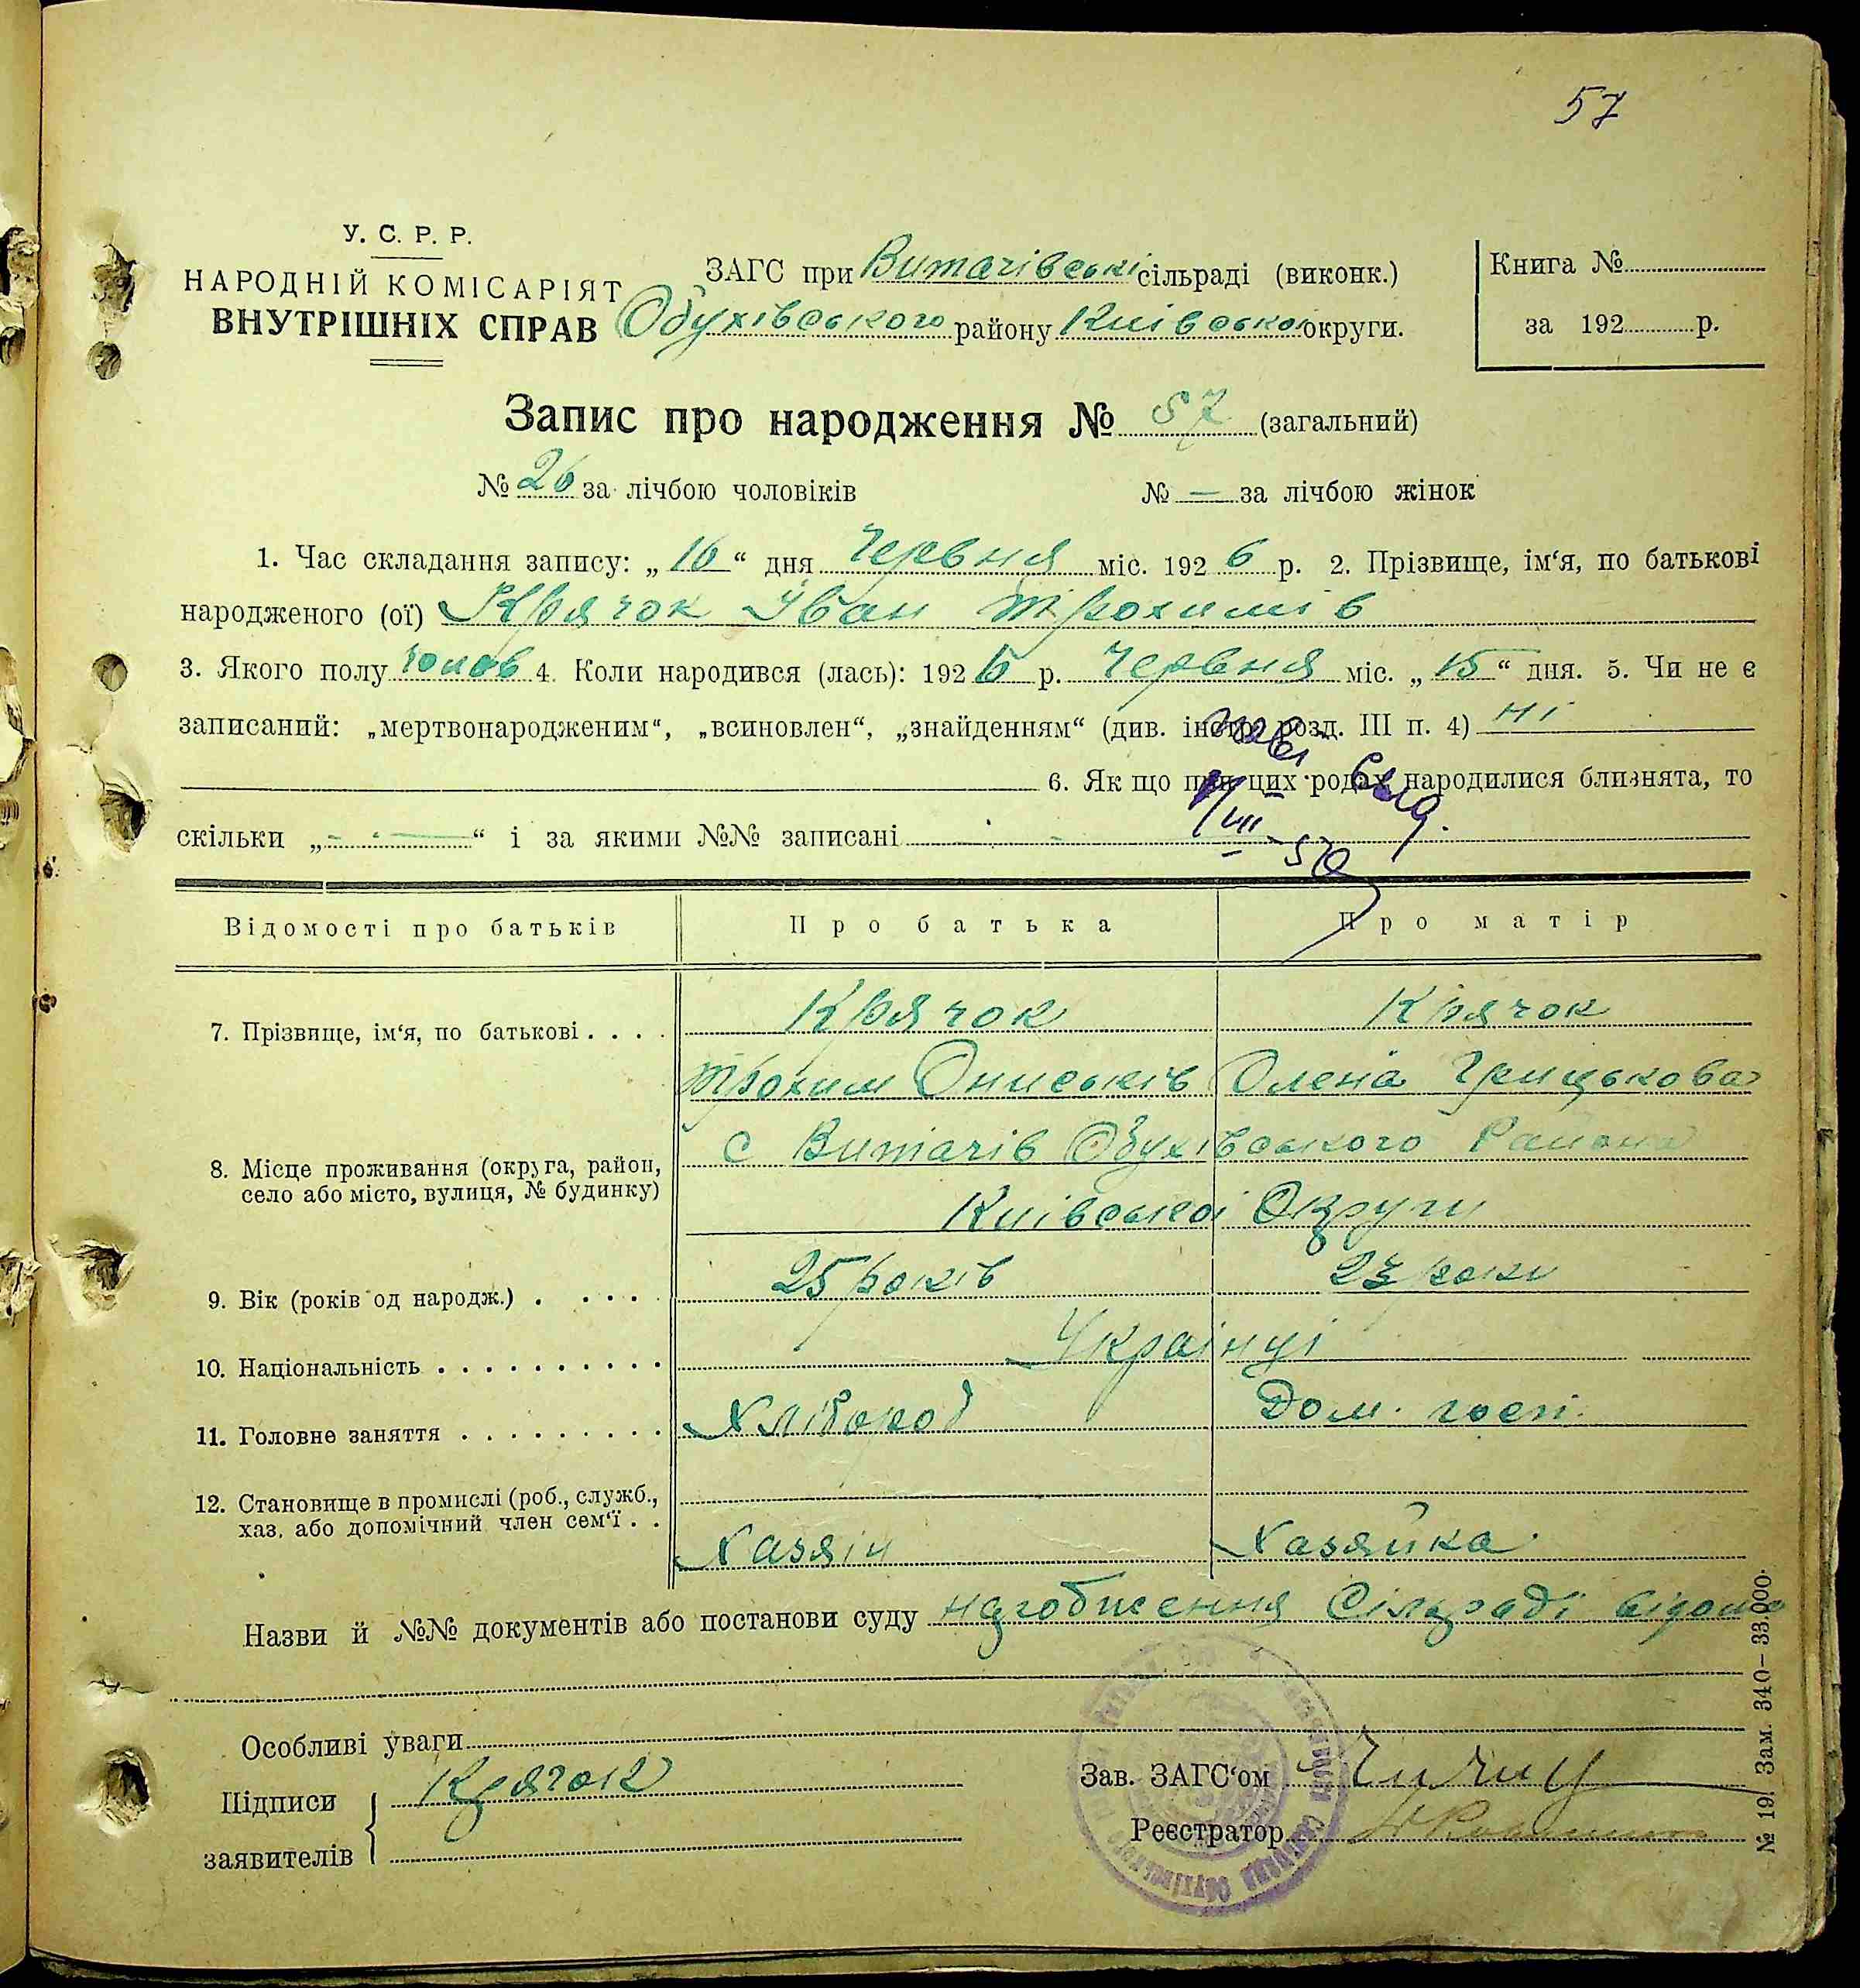 57
У. С. Р. Р.
НАРОДНІЙ КОМІСАРІЯТ
ВНУТРІШНІХ СПРАВ
ЗАГС при Витачівські сільраді (виконк.)
Обухівського району Київської округи.
Книга №
за 192 р.
Запис про народження № 57 (загальний)
№ 26 за лічбою чоловіків № — за лічбою жінок
1. Час складання запису: „16“ дня Червня міс. 1926 р. 2. Прізвище, ім‘я, по батькові
народженого (ої) Крячок Іван Трохимів
3. Якого полу чолов 4. Коли народився (лась): 1926 р. Червня міс. „15“ дня. 5. Чи не є
записаний: „мертвонародженим“, „всиновлен“, „знайденням“ (див. інстр. розд. III п. 4) ні
6. Як що при цих родах народилися близнята, то
скільки „ “ і за якими №№ записані
Відомості про батьків Про батька Про матір
7. Прізвище, ім‘я, по батькові Крячок Крячок
Трохим Ониськів Олена Грицькова
8. Місце проживання (округа, район,
село або місто, вулиця, № будинку)
с Витачів Обухівського Района
Київської Округи
9. Вік (років од народж.) 25 років 23 роки
10. Національність Українці
11. Головне заняття Хлібороб Дом. госп.
12. Становище в промислі (роб., служб.,
хаз. або допомічний член сем‘ї
Хазяін Хазяйка
Назви й №№ документів або постанови суду Сілраді відомо
Особливі уваги
Підписи Крячок
заявителів
Зав. ЗАГС‘ом
Реєстратор
№ 19. Зам. 340–33.000.